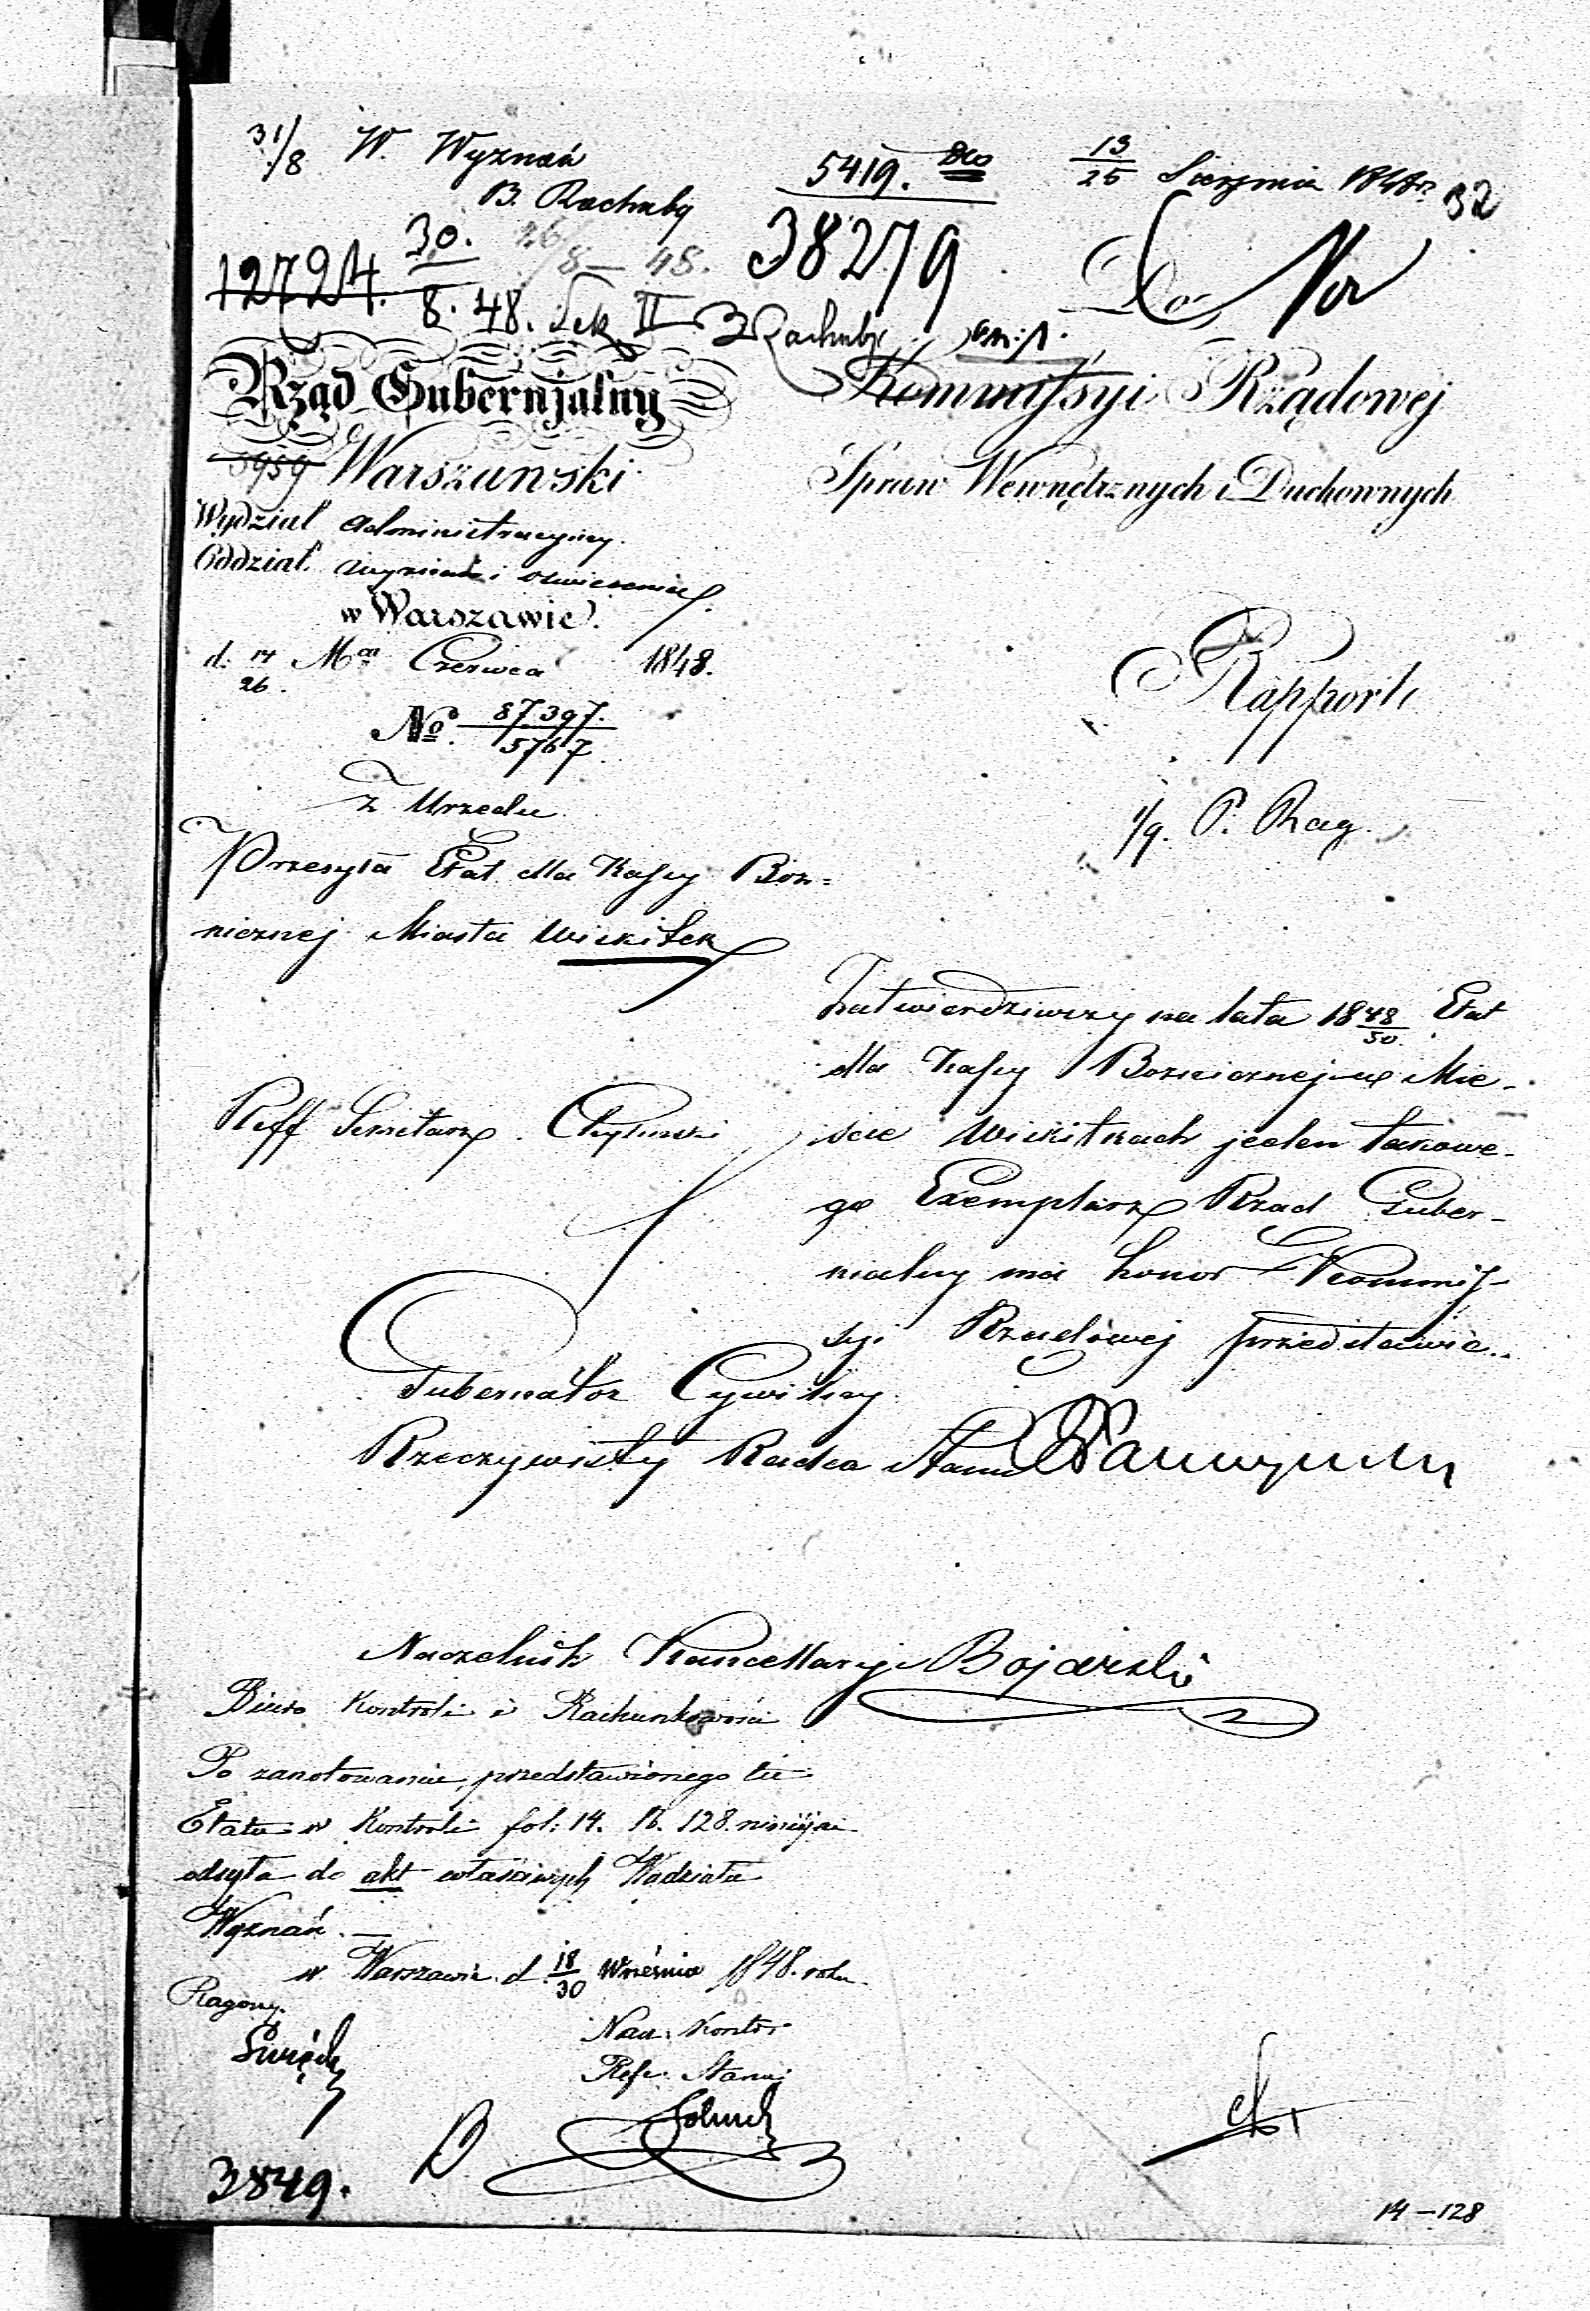 31/8 W. Wyznań
B. Rachuby
5419.
13/25 Sierpnia 1848 r.
32
12724.
30.
8. 48.
26/8 — 48.
38279
Sek II
B Rachuby
Do
Rząd Gubernjalny
5959 Warszawski
Kommissyi Rządowej
Spraw Wewnętrznych i Duchownych
Wydział Administracyjny.
Oddział Wyznań i oswiecenia
w Warszawie.
d: 14/26 Mca Czerwca 1848.
No. 87397./5767
Rapport
Z Urzedu
P. Rag.
Przesyła Etat dla Kassy Boz=
nicznej Miasta Wiskitek
Zatwierdziwszy na lata 1848/50 Etat
dla Kassy Bozniczney w Mie-
scie Wiskitkach jeden takowe-
go Exemplarz Rząd Guber-
nialny ma honor Kommis-
syi Rządowej przedstawic.
Reff Sekretarz
Gubernator Cywilny
Rzeczywisty Radca Stanu
Naczelnik Kancellaryi Bojarski
Biuro Kontroli i Rachunkowości
Po zanotowaniu, przedstawionego tu
Etatu w Kontroli fol: 14. N. 128. niniejsze
odsyła do akt właściwych Wydziału
Wyznań. —
w Warszawie d. 18/30 Września 1848. roku
Nacz. Kontr:
Refr. Stanu
3849.
14 — 128